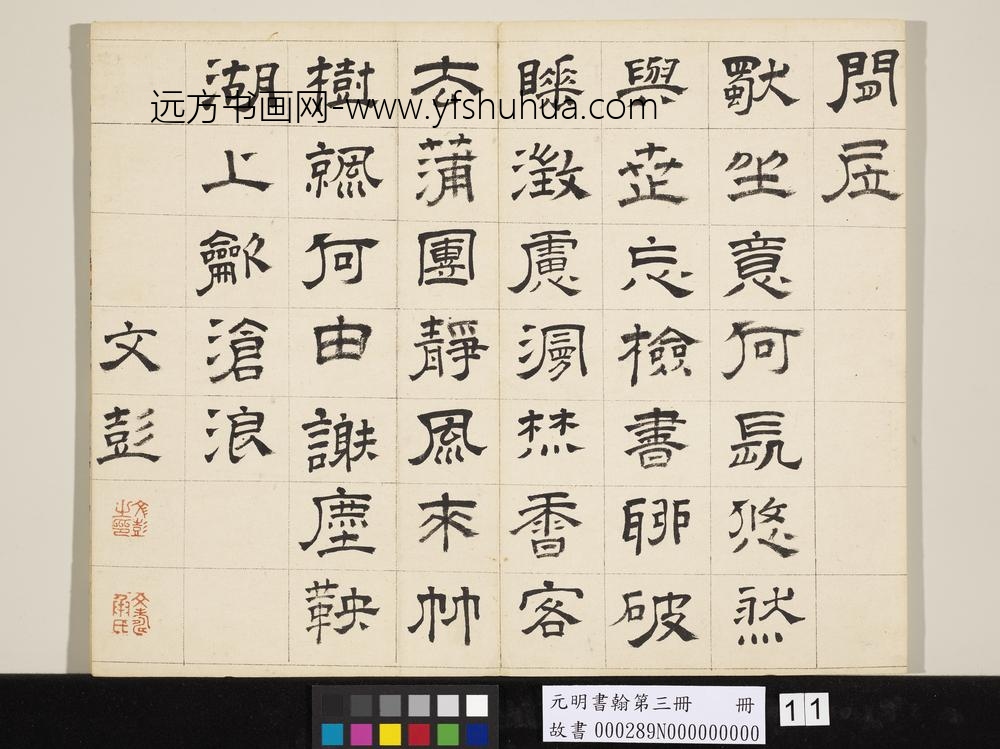 間居
獨坐意何長悠然
與世忘檢書聊破
睡澂慮漫焚香客
去蒲團靜風來竹
樹䬝何由謝塵鞅
湖上歌滄浪
文彭
文彭之印
文壽承氏
远方书画网-www.yfshuhua.com
元明書翰第三冊 冊
故書 000289N000000000
11